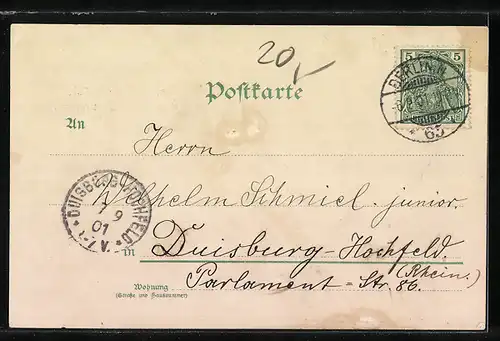 20,-
5 5
Postkarte
BERLIN N.
65
An
Herrn
Wilhelm Schmiel. junior.
DUISBURG-HOCHFELD
7 9
01
7-8 V.
in Duisburg-Hochfeld.
(Rhein.)
Parlament-Str. 86.
Wohnung
(Straße und Hausnummer)